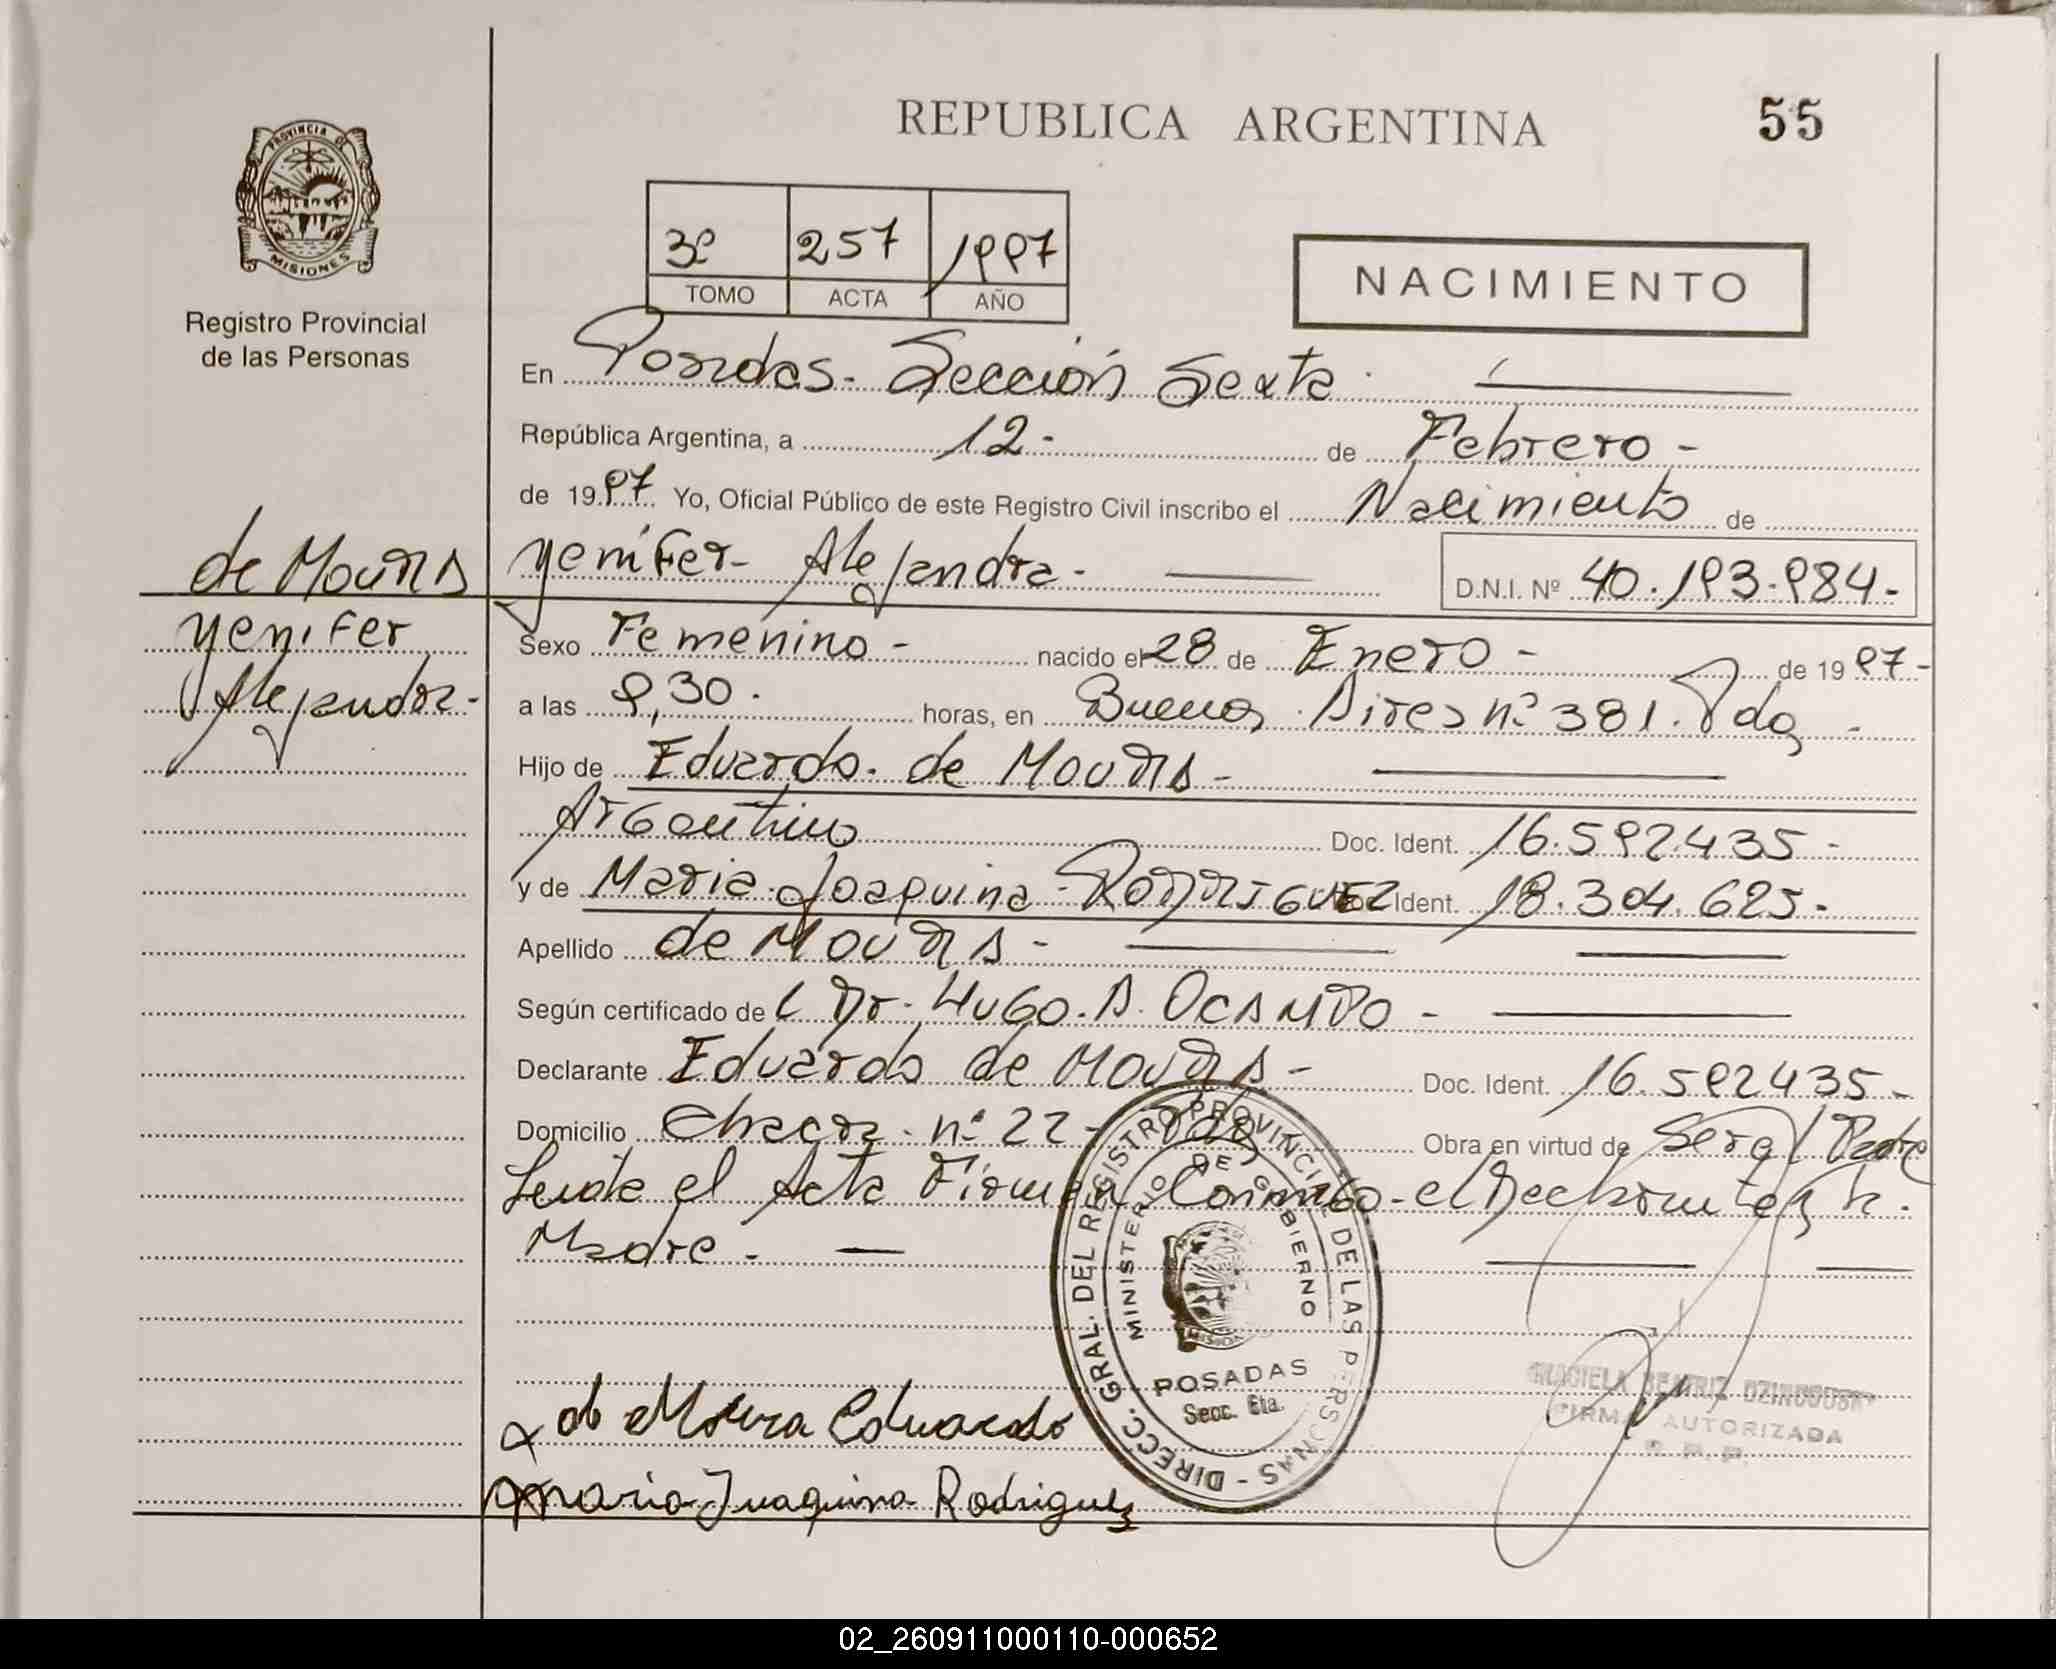 REPUBLICA ARGENTINA
55
PROVINCIA DE
MISIONES
Registro Provincial
de las Personas
3º 257 1997
TOMO ACTA AÑO
NACIMIENTO
En Posadas - Sección Sexta.
República Argentina, a 12 - de Febrero -
de 1997 Yo, Oficial Público de este Registro Civil inscribo el Nacimiento de
de Moura
Yenifer
Alejandra -
Yenifer - Alejandra - D.N.I. Nº 40.193.984 -
Sexo Femenino - nacido el 28 de Enero - de 1997 -
a las 9,30. horas, en Buenos Aires nº 381. Pdas -
Hijo de Eduardo. de Moura -
Argentino Doc. Ident. 16.592435 -
y de Maria Joaquina Rodriguez Ident. 18.304.625 -
Apellido de Moura -
Según certificado de l Dr. Hugo. A. Ocampo -
Declarante Eduardo de Moura - Doc. Ident. 16.592435 -
Domicilio Chacra nº 22 - Pdas Obra en virtud de Ser el Padre
Leida el Acta Firman Conmigo - el Declarante y la
Madre. -
DIRECC. GRAL. DEL REGISTRO PROVINCIAL DE LAS PERSONAS -
MINISTERIO DE GOBIERNO
POSADAS
Secc. 6ta.
de Moura Eduardo
Maria Juaquina Rodriguez
GRACIELA BEATRIZ
FIRMA AUTORIZADA
02_260911000110-000652